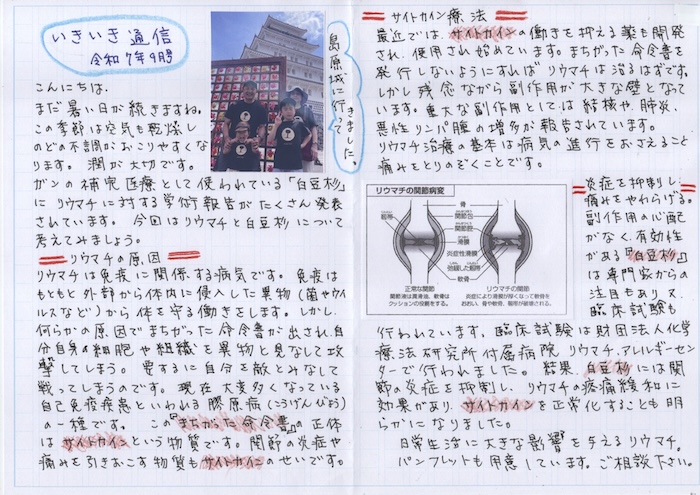 いきいき通信
令和7年9月号
島原城に行って
きました。
こんにちは。
まだ暑い日が続きますね。
この季節は空気も乾燥し
のどの不調がおこりやすくな
ります。潤が大切です。
ガンの補完医療として使われている「白豆杉」
に リウマチに対する学術報告がたくさん発表
されています。今回はリウマチと白豆杉について
考えてみましょう。
リウマチの原因
リウマチは免疫に関係する病気です。免疫は
もともと外部から体内に侵入した異物(菌やウイ
ルスなど)から体を守る働きをします。しかし、
何らかの原因でまちがった命令書が出され、自
分自身の細胞や組織を異物と見なして攻
撃してしまう。要するに自分を敵とみなして
戦ってしまうのです。現在大変多くなっている
自己免疫疾患といわれる膠原病(こうげんびょう)
の一種です。この『まちがった命令書』の正体
はサイトカインという物質です。関節の炎症や
痛みを引きおこす物質もサイトカインのせいです。
サイトカイン療法
最近では、サイトカインの働きを抑える薬も開発
され、使用され始めています。まちがった命令書を
発行しないようにすればリウマチは治るはずです。
しかし残念ながら副作用が大きな壁となって
います。重大な副作用としては結核や、肺炎、
悪性リンパ腫の増多が報告されています。
リウマチ治療の基本は病気の進行をおさえること
痛みをとりのぞくことです。
リウマチの関節病変
骨
関節包
関節腔
滑膜
炎症性滑膜
軟骨
靱帯
正常な関節
関節液は潤滑油、軟骨は
クッションの役割をする。
リウマチの関節
炎症により滑膜が厚くなって軟骨を
おおい、骨や軟骨、靱帯が破壊される。
炎症を抑制し、
痛みをやわらげる。
副作用の心配
がなく、有効性
がある『白豆杉』
は専門家からの
注目もあつく、
臨床試験も
行われています。臨床試験は財団法人化学
療法研究所付属病院 リウマチ、アレルギーセン
ターで行われました。結果、白豆杉には関
節の炎症を抑制し、リウマチの疼痛緩和に
効果があり、サイトカインを正常化することも明
らかになりました。
日常生活に大きな影響を与えるリウマチ。
パンフレットも用意しています。ご相談下さい。